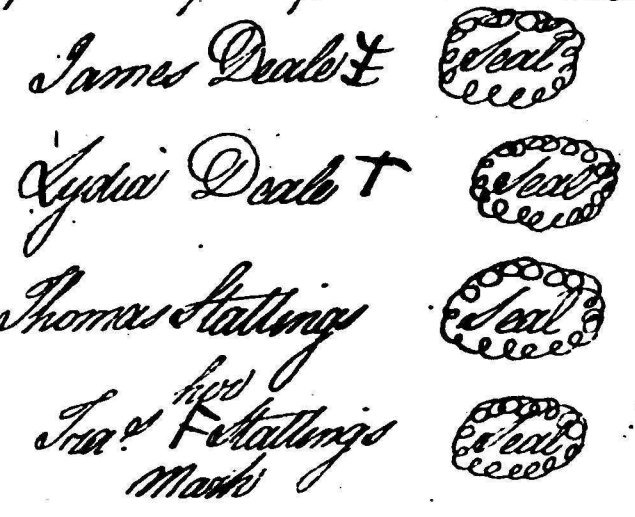 James Deale ‡ Seal
Lydia Deale + Seal
Thomas Stallings Seal
her
Fra.s F Stallings Seal
mark